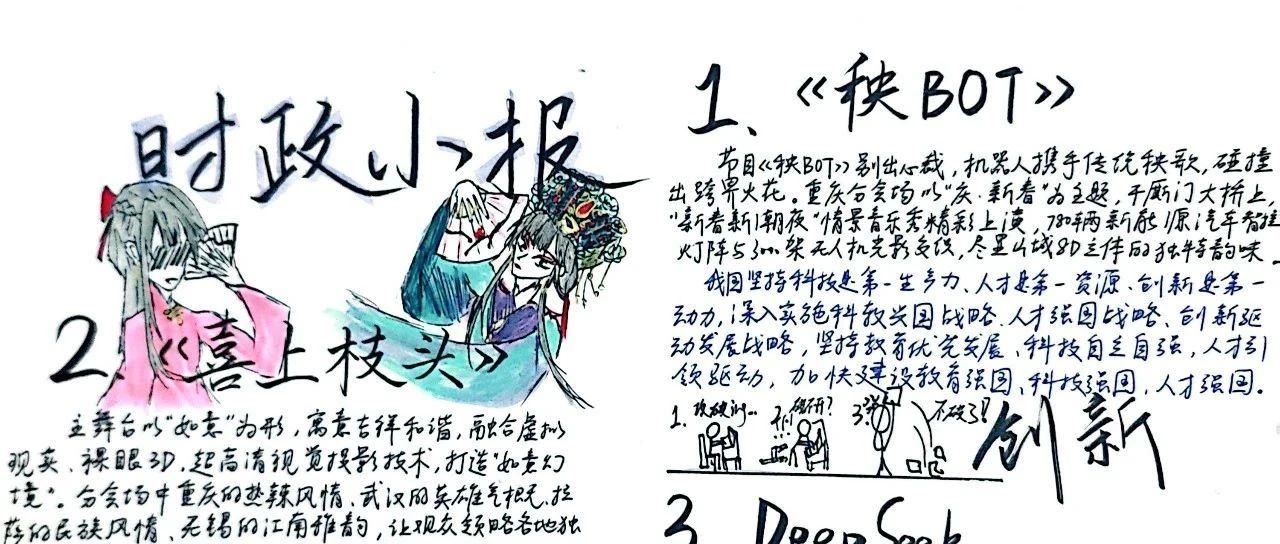 时政小报
2、《喜上枝头》
主舞台以"如意"为形，寓意吉祥和谐，融合虚拟
现实、裸眼3D，超高清视觉投影技术，打造"如意幻
境"。分会场中重庆的热辣风情、武汉的英雄气概、拉
萨的民族风情、无锡的江南雅韵，让观众领略各地独
1、《秧BOT》
节目《秧BOT》别出心裁，机器人携手传统秧歌，碰撞
出跨界火花。重庆分会场以"庆·新春"为主题，千厮门大桥上，
"新春新潮夜"情景音乐秀精彩上演，780车辆新能源汽车智能
灯阵与300架无人机光影交织，尽显山城8D立体的独特韵味。
我国坚持科技是第一生产力、人才是第一资源、创新是第一
动力，深入实施科教兴国战略、人才强国战略、创新驱
动发展战略，坚持教育优先发展、科技自立自强，人才引
领驱动，加快建设教育强国、科技强国，人才强国。
1.
2.
3.
不破了！
创新
3、DeepSeek